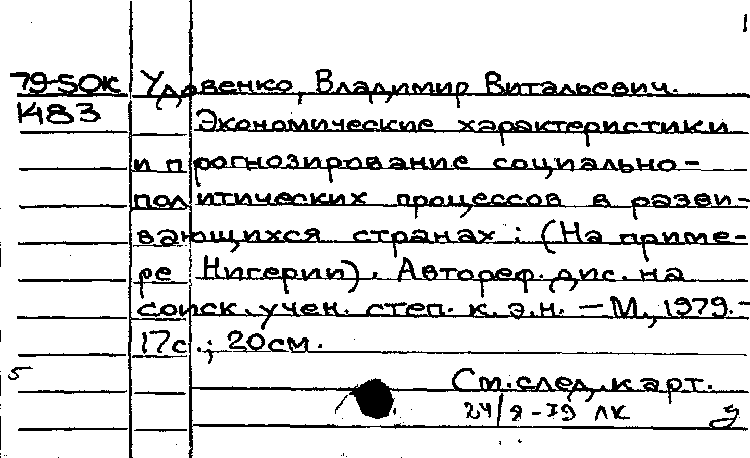 1
79-50К Удовенко, Владимир Витальевич.
1483
Экономические характеристики
и прогнозирование социально-
политических процессов в разви-
вающихся странах: (На приме-
ре Нигерии). Автореф. дис. на
соиск. учен. степ. к.э.н. — М., 1979.-
17с.; 20см.
5
См. след. карт.
24/